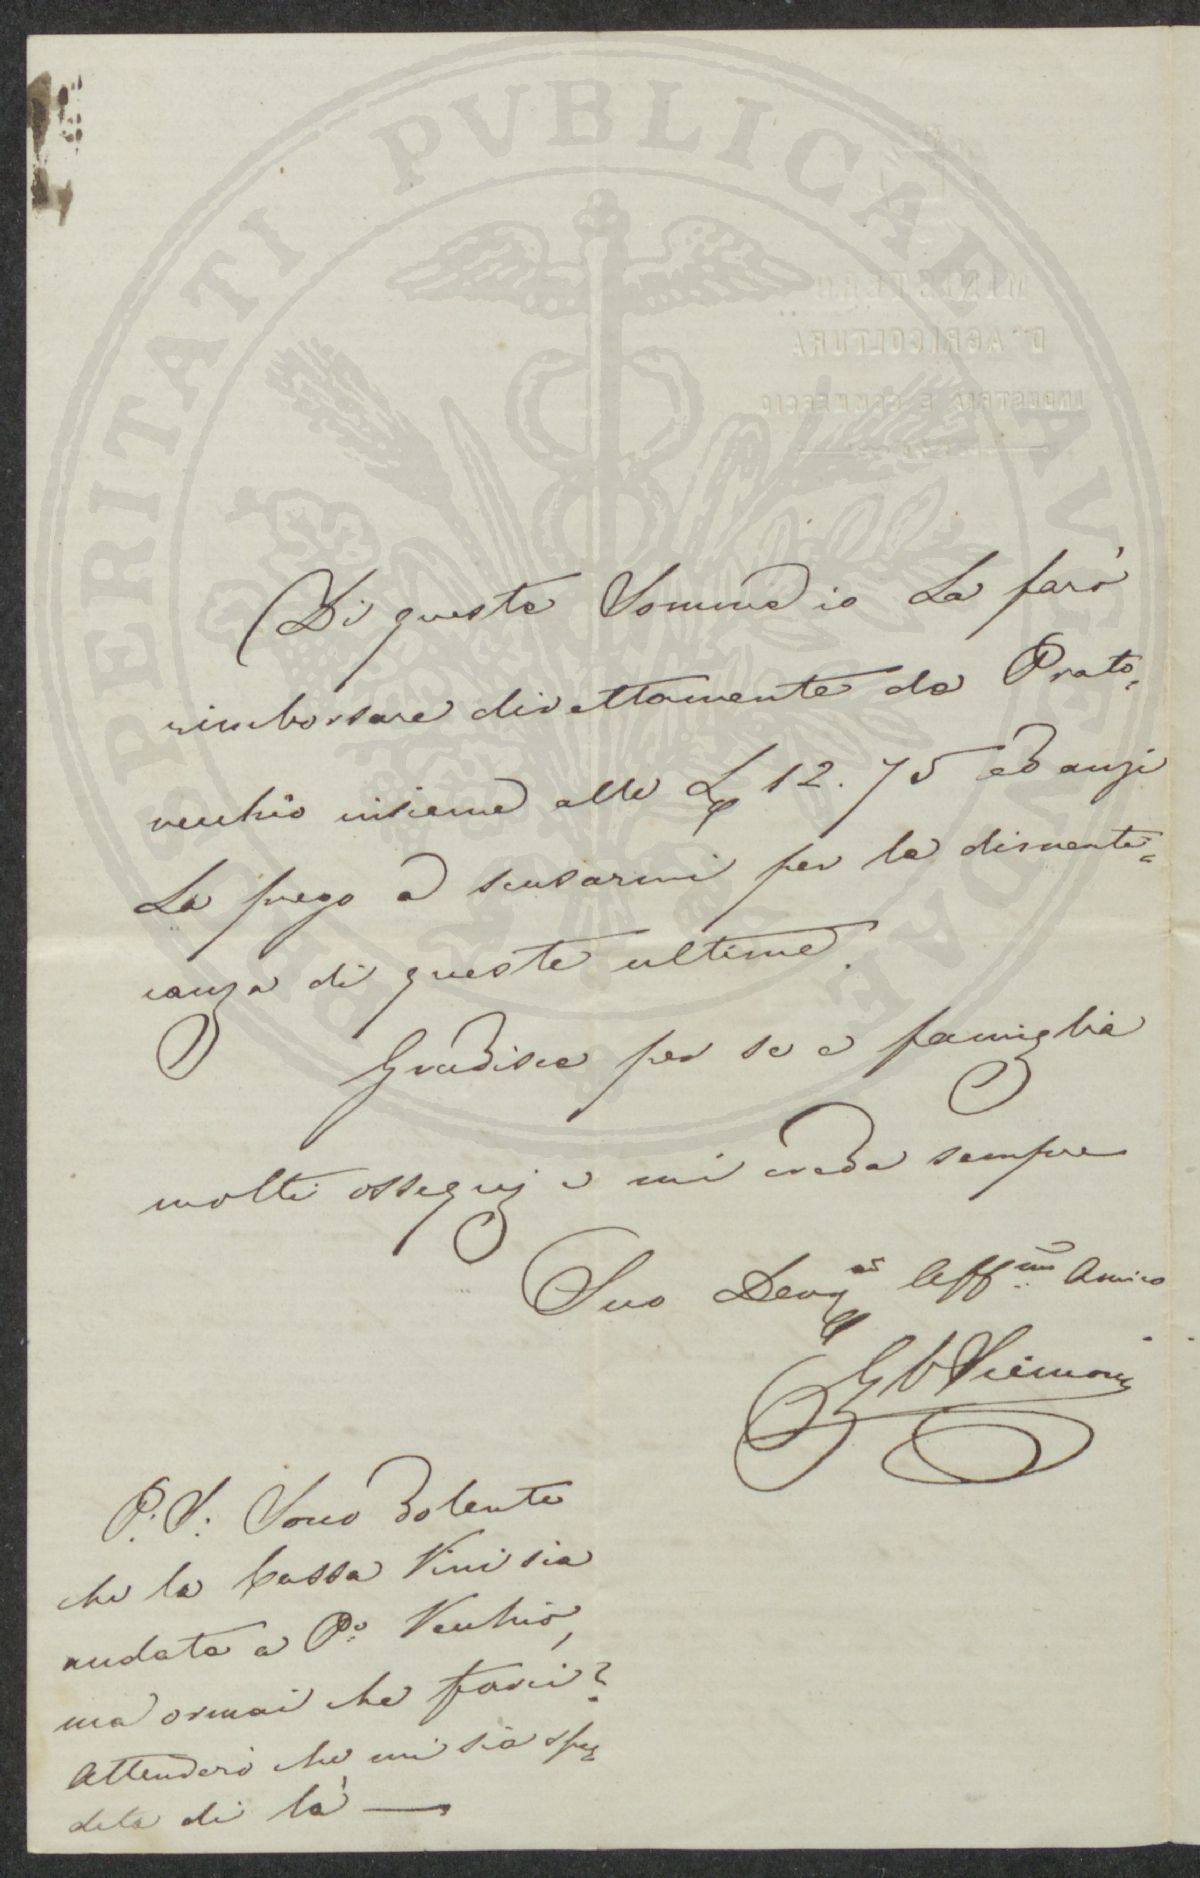 PROSPERITATI PVBLICAE AVGENDAE
MINISTERO
D'AGRICOLTURA
INDUSTRIA E COMMERCIO
Di questa somma io La farò
rimborsare direttamente da Prato=
vecchio insieme alle L 12.75 ed anzi
La prego a scusarmi per la dimenti=
canza di queste ultime.
Gradisca per se e famiglia
molti ossequj e mi creda sempre
Suo Devo Affmo Amico
G B Siemoni
P.S. Sono dolente
che la Cassa Vini sia
andata a Po Vecchio,
ma ormai che farci?
Attenderò che mi sia spe
dita di là —